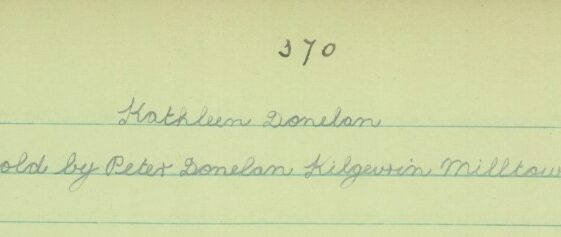 370
Kathleen Donelan
old by Peter Donelan Kilgevrin Milltow